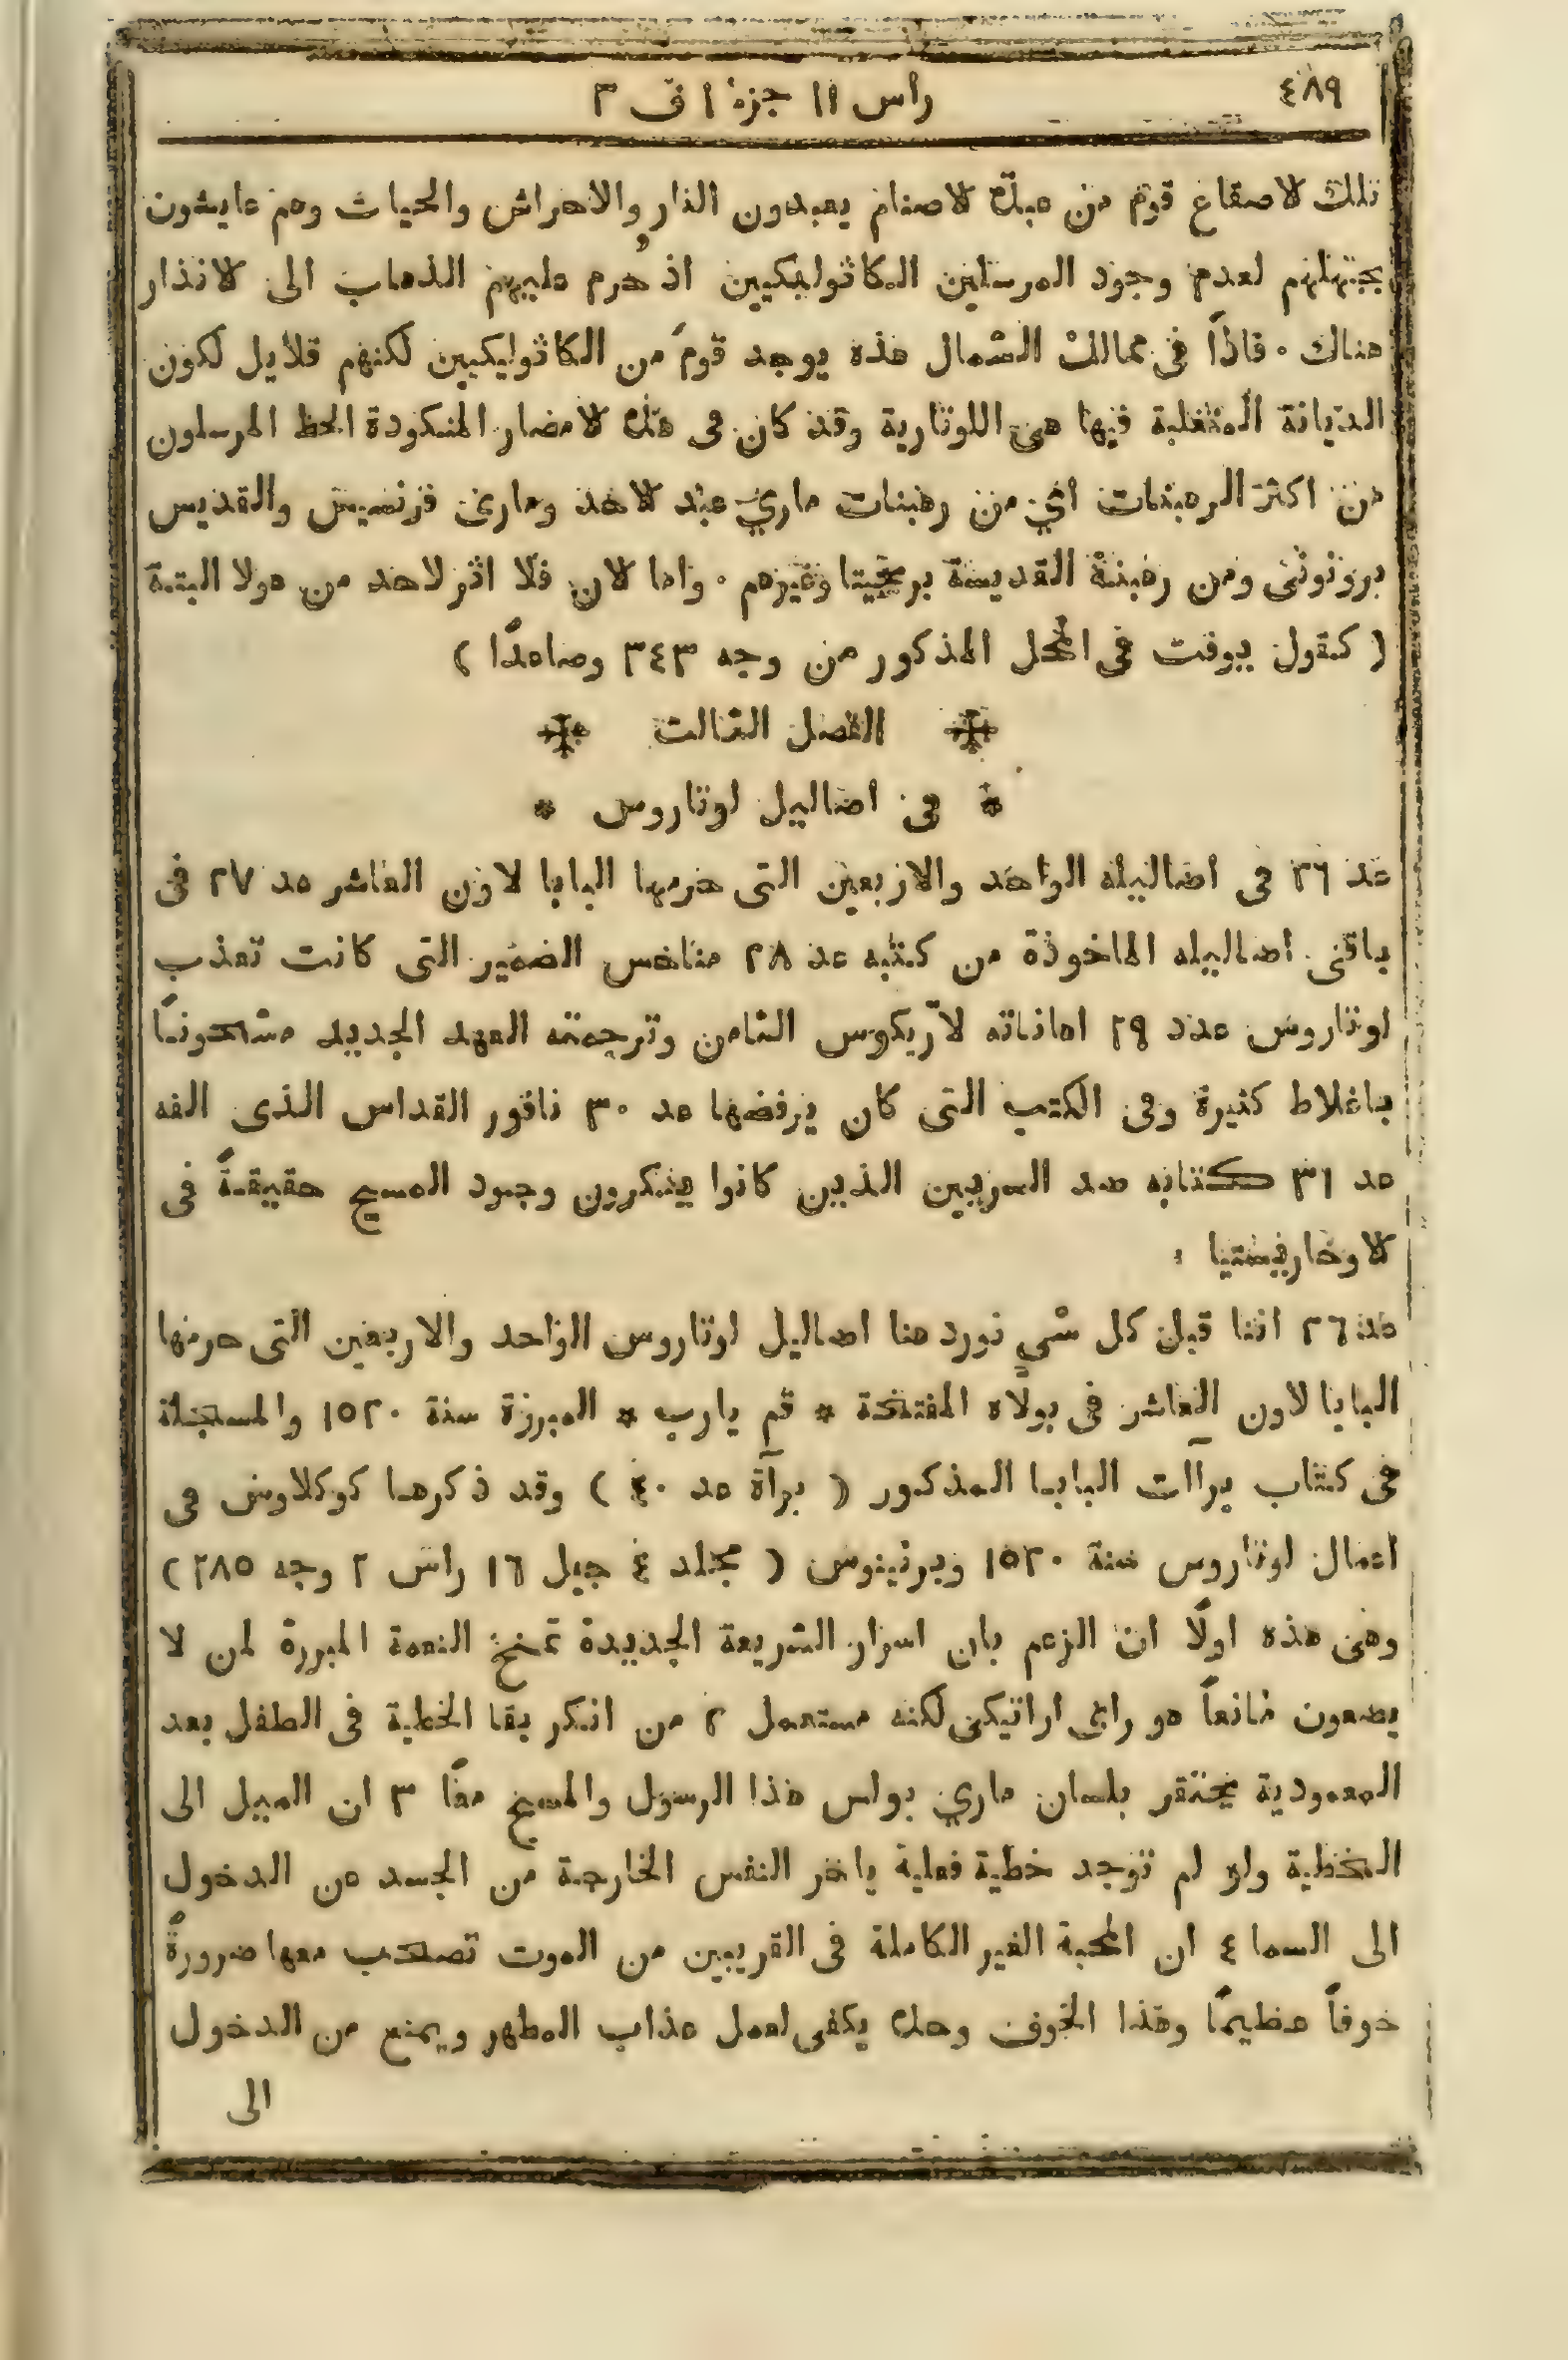 ٤٨٩ راس ١١ جزء ١ ف ٣
تلك الاصقاع قوم من عبدة الاصنام يعبدون النار والاحراش والحيات وهم عايشون
بجهلهم لعدم وجود المرسلين الكاثوليكيين اذ حُرم عليهم الذهاب الى الانذار
هناك ٠ فاذًا في ممالك الشمال هذه يوجد قومً من الكاثوليكيين لكنهم قلايل لكون
الديانة المتغلبة فيها هي اللوتارية وقد كان في هذه الامصار المنكودة الحظ المرسلون
من اكثر الرهبنات اي من رهبنات ماري عبد الاحد وماري فرنسيس والقديس
برونوني ومن رهبنة القديسة بريجيتا وغيرهم ٠ واما الان فلا اثر لاحد من هولا البتة
( كقول يوفت في المحل المذكور من وجه ٣٤٣ وصاعدًا )
الفصل الثالث
* في اضاليل لوتاروس *
عد ٢٦ في اضاليله الواحد والاربعين التي حرمها البابا لاون العاشر عد ٢٧ في
باقي اضاليله الماخوذة من كتبه عد ٢٨ مناخس الضمير التي كانت تعذب
لوتاروس عدد ٢٩ اهاناته لاريكوس الثامن وترجمته العهد الجديد مشحونًا
باغلاط كثيرة وفي الكتب التي كان يرفضها عد ٣٠ نافور القداس الذي الفه
عد ٣١ كتابه ضد السريين الذين كانوا ينكرون وجود المسيح حقيقةً في
الاوخارستيا :
عد ٢٦ اننا قبل كل شيٍ نورد هنا اضاليل لوتاروس الواحد والاربعين التي حرمها
البابا لاون العاشر في بولاه المفتتحة * قم يارب * المبرزة سنة ١٥٢٠ والمسجلة
في كتاب براآت البابا المذكور ( برآة عد ٤٠ ) وقد ذكرها كوكلاوس في
اعمال لوتاروس سنة ١٥٢٠ وبرنينوس ( مجلد ٤ جيل ١٦ راس ٢ وجه ٢٨٥ )
وهي هذه اولًا ان الزعم بان اسرار الشريعة الجديدة تمنح النعمة المبررة لمن لا
يضعون مانعاً هو راي اراتيكي لكنه مستعمل ٢ من انكر بقا الخطية في الطفل بعد
المعمودية يحتقر بلسان ماري بولس هذا الرسول والمسيح معًا ٣ ان الميل الى
الخطية ولو لم توجد خطية فعلية ياخر النفس الخارجة من الجسد عن الدخول
الى السما ٤ ان المحبة الغير الكاملة في القريبين من الموت تصحب معها ضرورةً
خوفاً عظيمًا وهذا الخوف وحده يكفي لعمل عذاب المطهر ويمنع من الدخول
الى